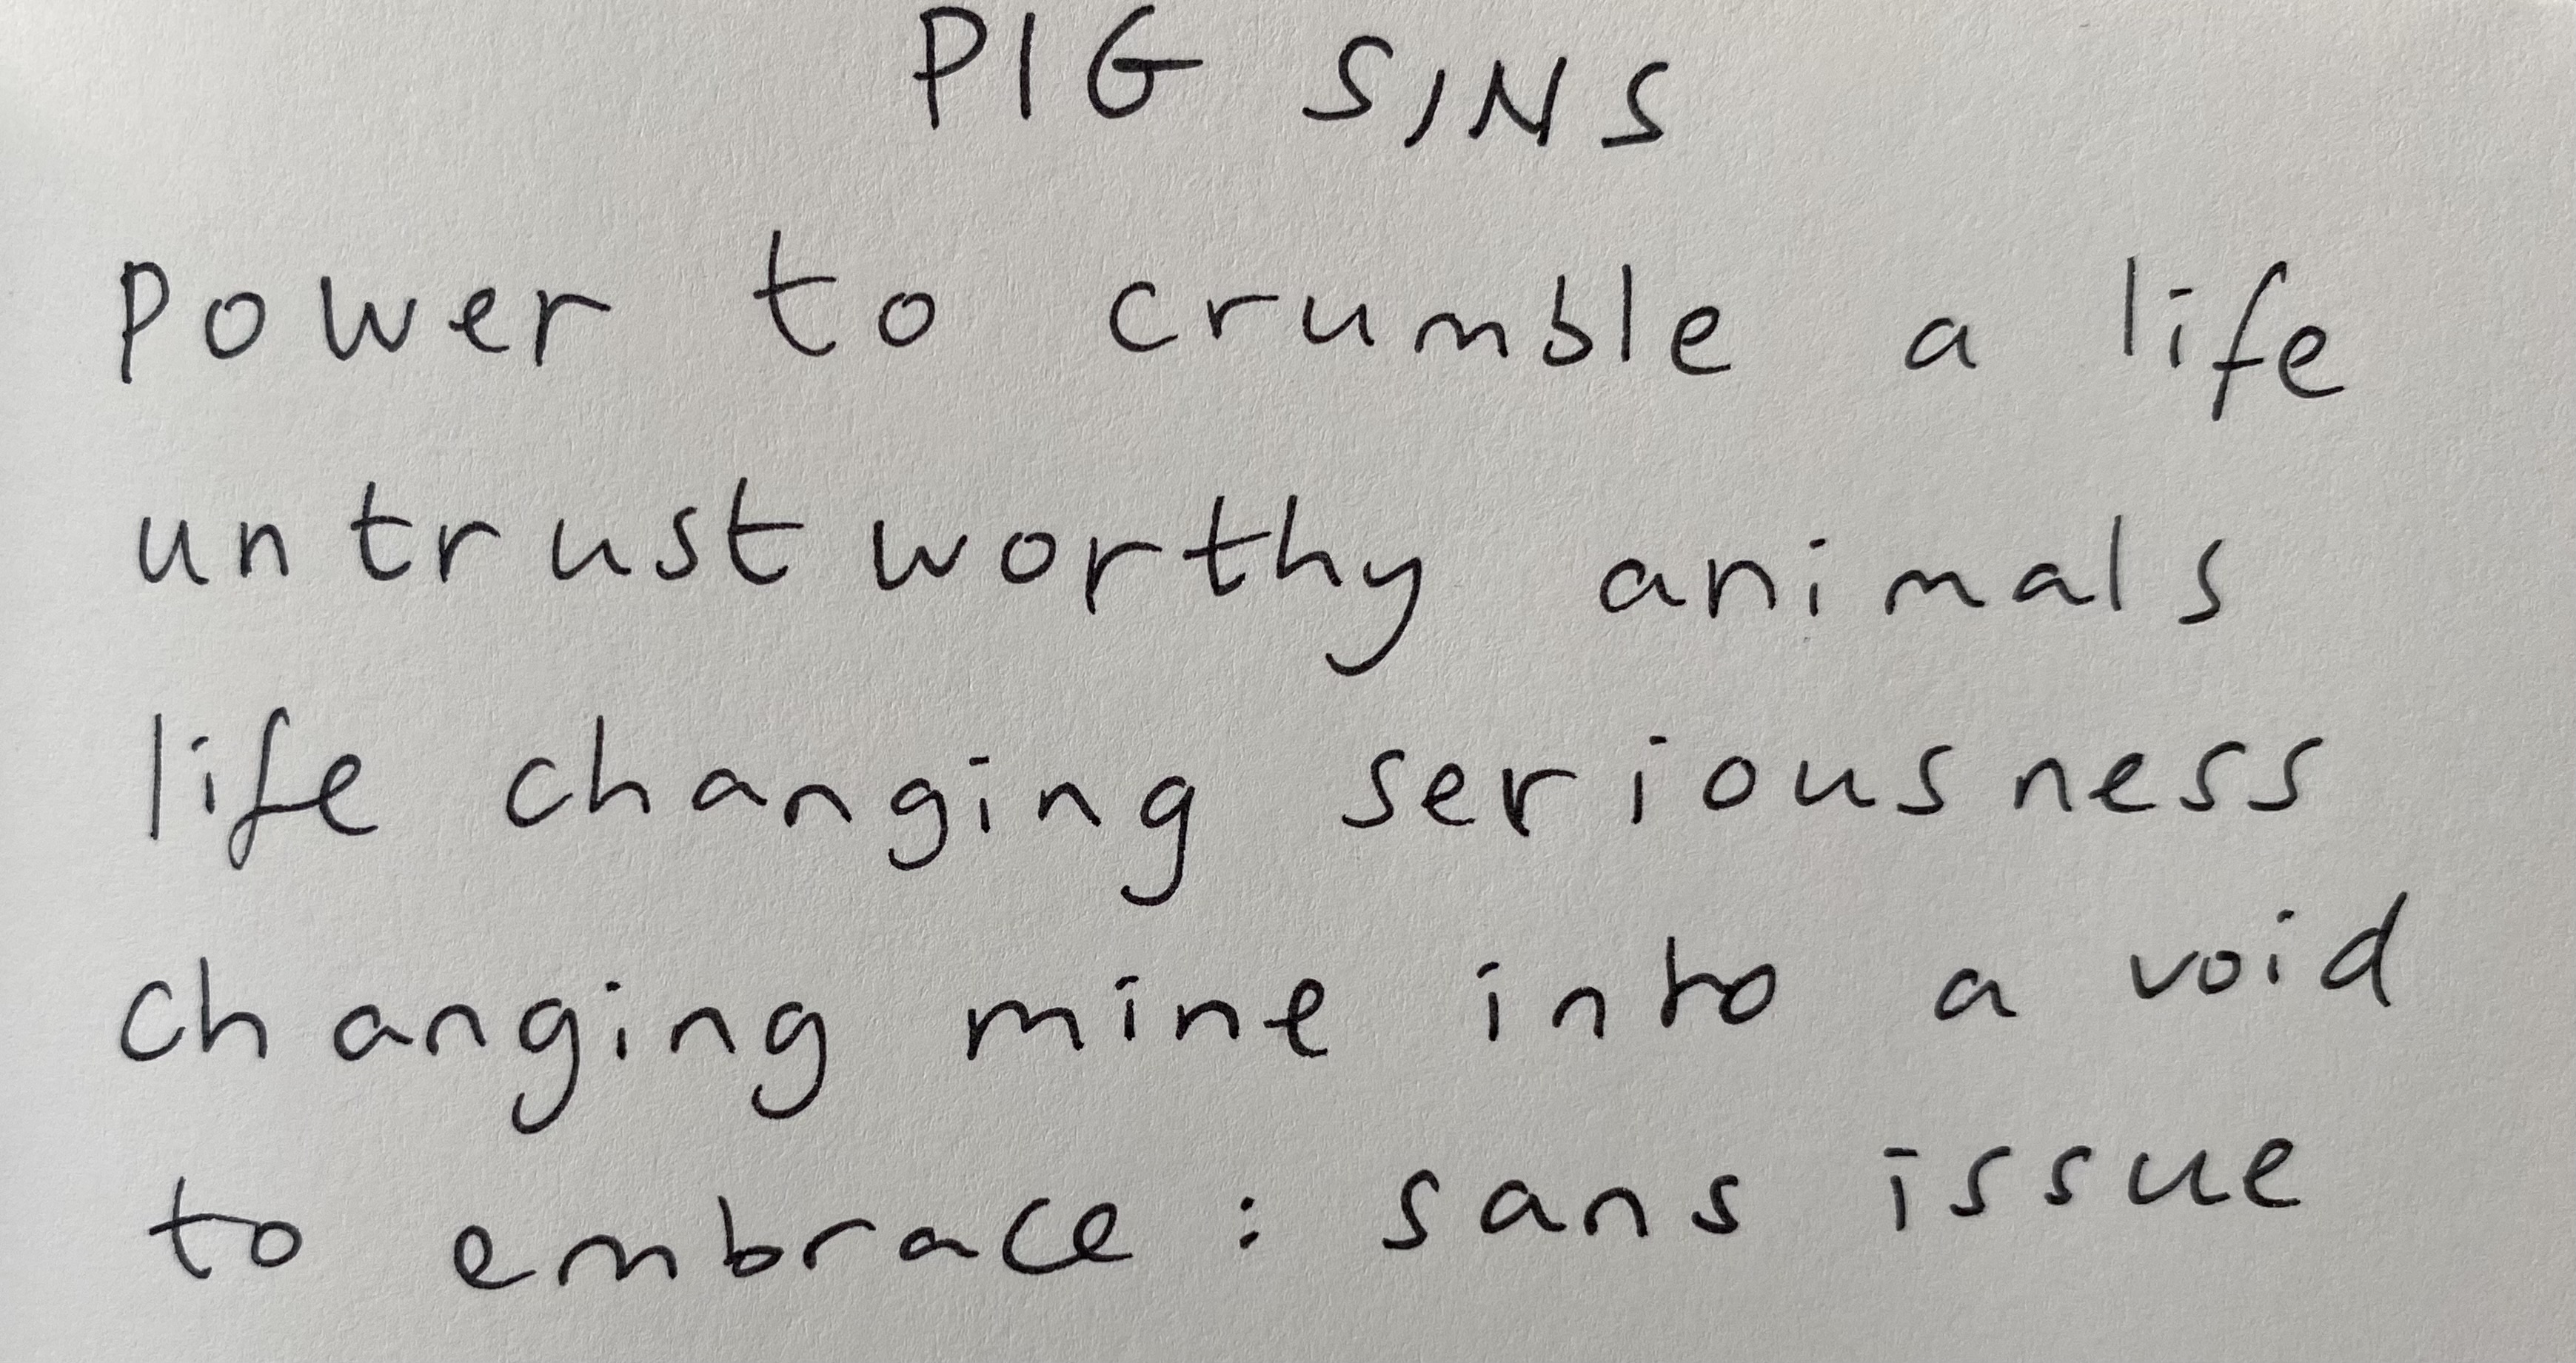 PIG SINS
Power to crumble a life
untrustworthy animals
life changing seriousness
changing mine into a void
to embrace : sans issue